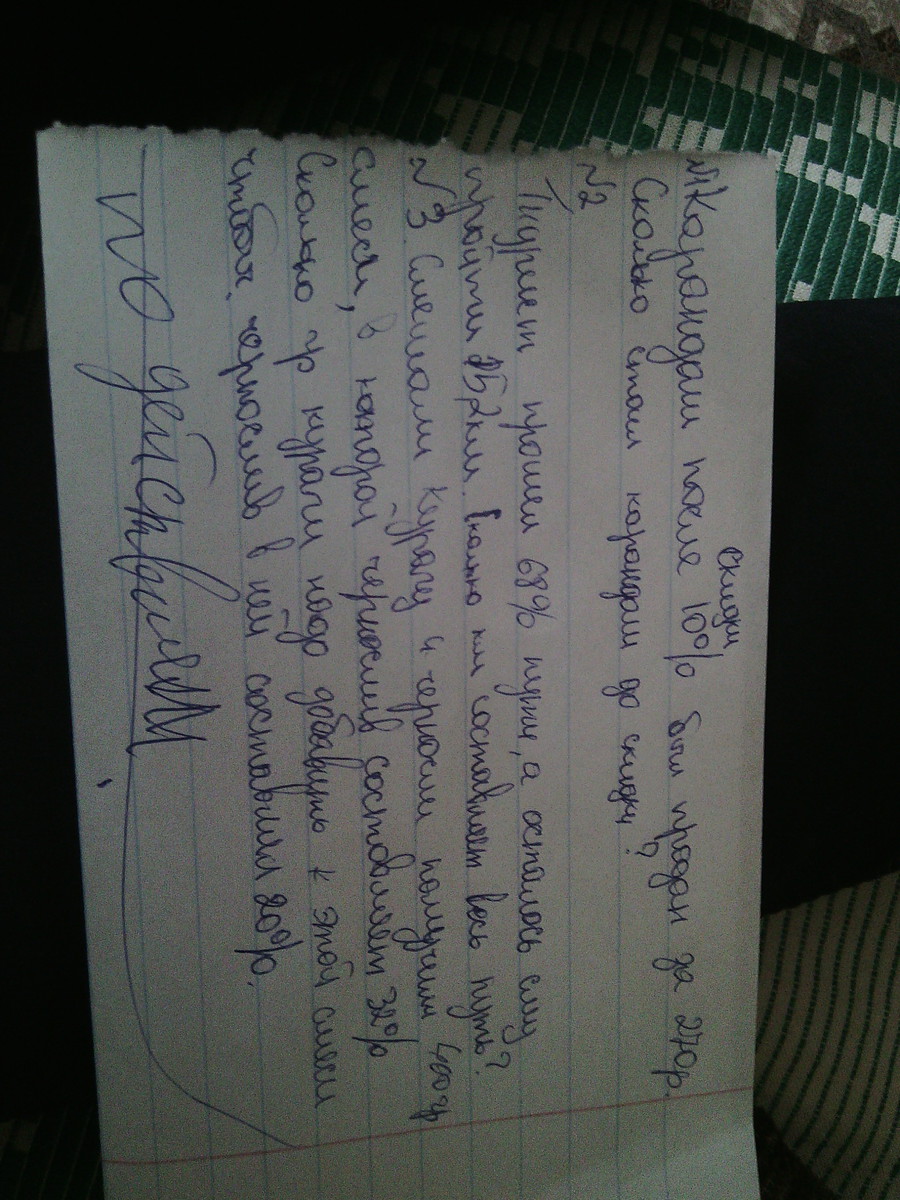 скидки
№1 Карандаш после 10% был продан за 270р.
Сколько стоил карандаш до скидки?
№2
Турист прошел 68% пути, а осталось ему
пройти 15,2км. Сколько км составляет весь путь?
№3 Смешали курагу и чернослив получили 400гр
смеси, в которой чернослив составляет 32%
Сколько гр кураги надо добавить к этой смеси
чтобы чернослив в ней составил 20%.
по действиям